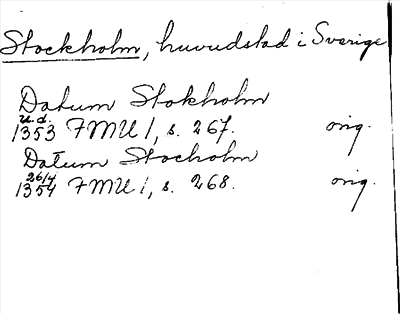 Stockholm, huvudstad i Sverige
Datum Stokholm
u.d.
1353 FMU 1, s. 267. orig.
Datum Stocholm
26/4
1354 FMU 1, s. 268. orig.